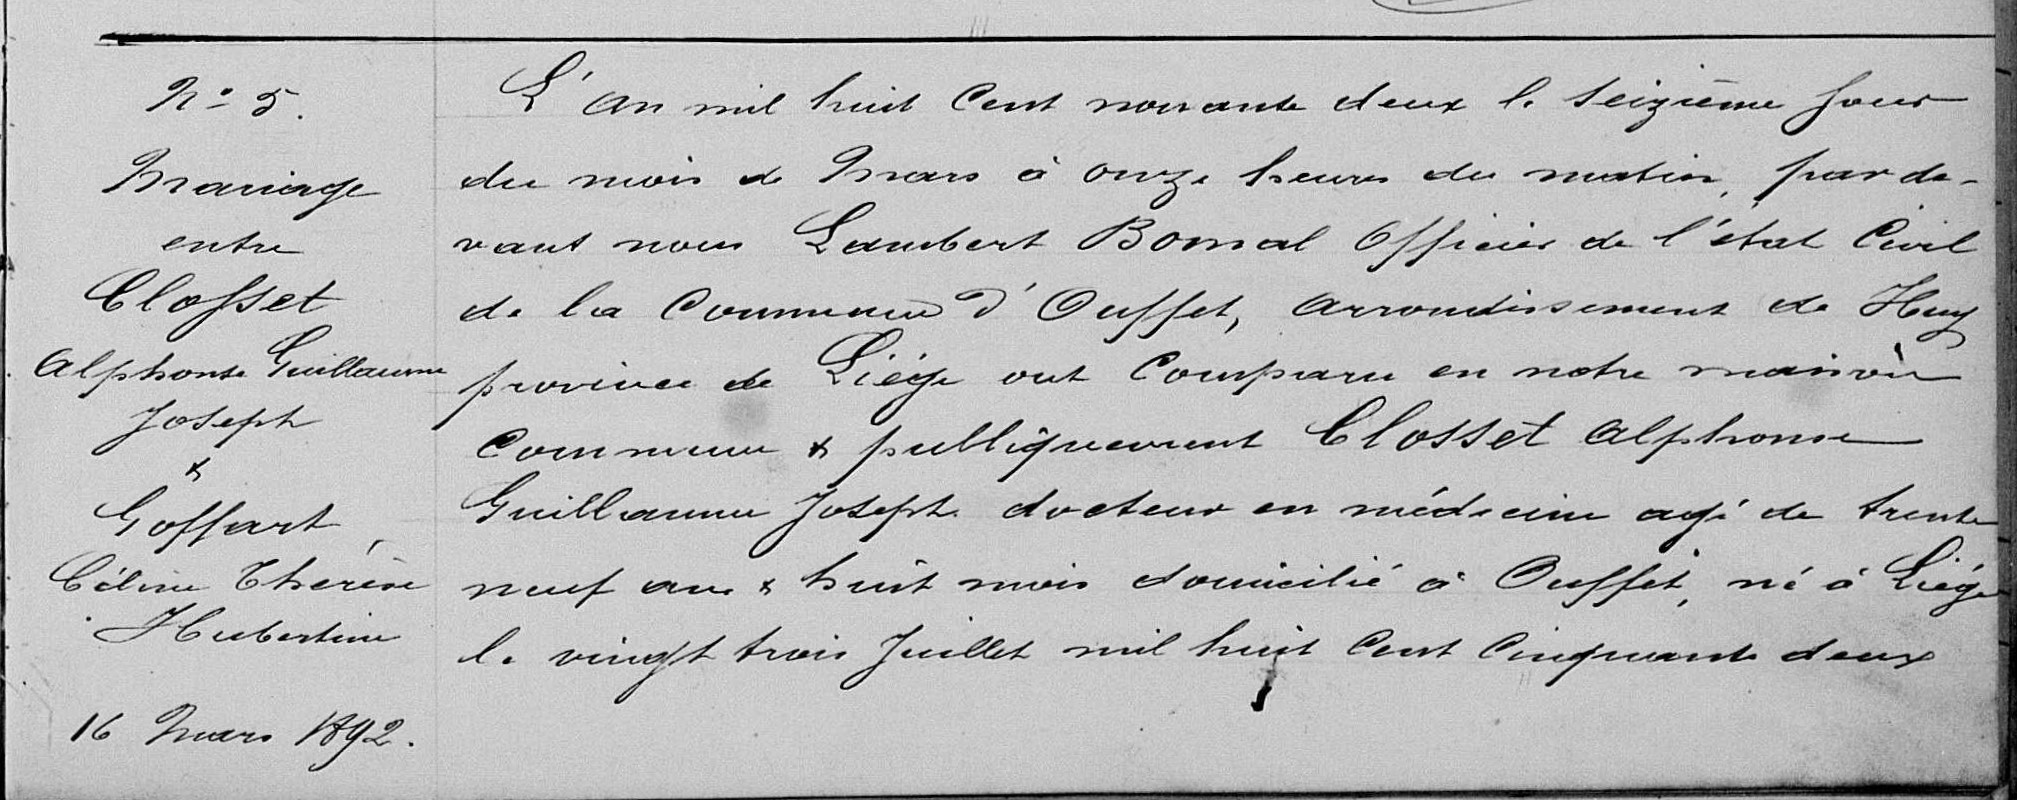 N° 5.
Mariage
entre
Closset
Alphonse Guillaume
Joseph
&
Goffart
Céline Thérèse
Hubertine
16 Mars 1892.
L'An mil huit Cent nonante deux le seizième jour
du mois de Mars à onze heures du matin, par de-
vant nous Lambert Bomal Officier de l'état Civil
de la Commune d'Ouffet, arrondissement de Huy
province de Liége ont Comparu en notre maison
Commune & publiquement Closset Alphonse
Guillaume Joseph docteur en médecine agé de trente
neuf ans & huit mois domicilié à Ouffet, né à Liége
le vingt trois Juillet mil huit Cent Cinquante deux